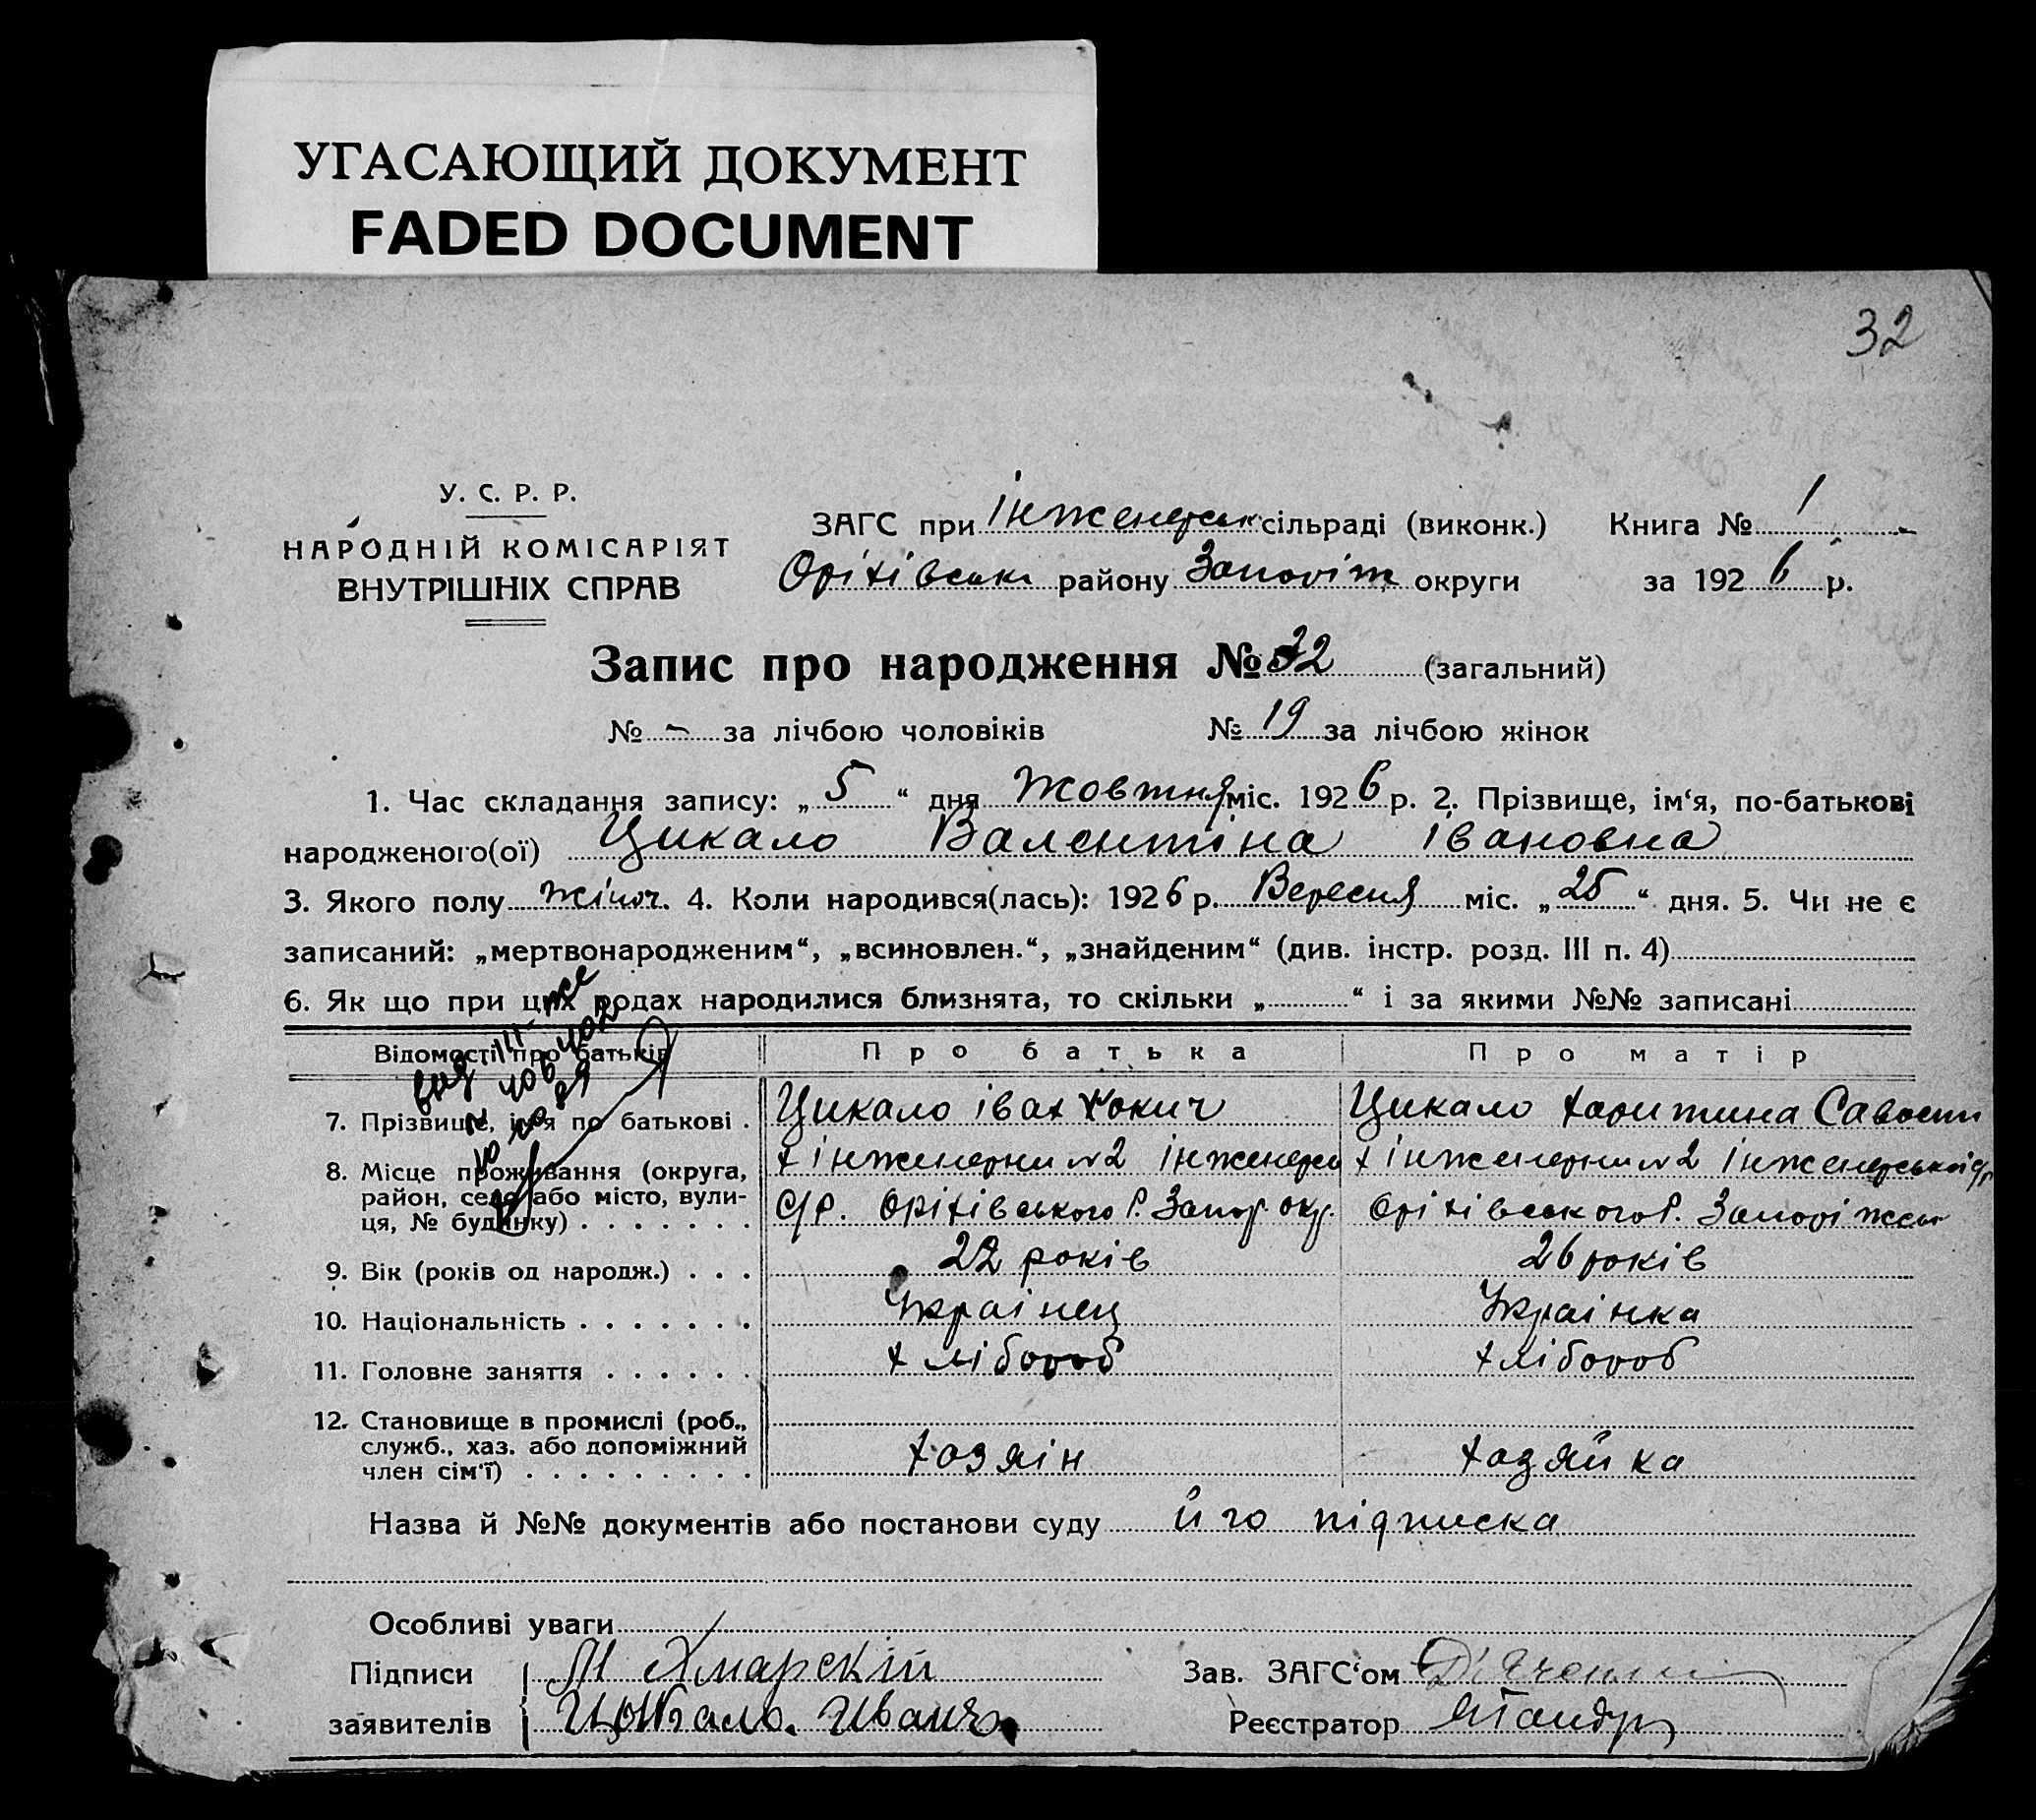 УГАСАЮЩИЙ ДОКУМЕНТ
FADED DOCUMENT
32
У. С. Р. Р.
НАРОДНІЙ КОМІСАРІЯТ
ВНУТРІШНІХ СПРАВ
ЗАГС при Інженерськ сільраді (виконк.)
Оріхівськ району Запоріж округи
Книга № 1
за 1926 р.
Запис про народження № 32 (загальний)
№ - за лічбою чоловіків № 19 за лічбою жінок
1. Час складання запису: „ 5 “ дня Жовтня міс. 1926 р. 2. Прізвище, ім‘я, по-батькові
народженого(ої) Цикало Валентіна Івановна
3. Якого полу жіноч. 4. Коли народився(лась): 1926 р. Вересня міс. „ 25 “ дня. 5. Чи не є
записаний: „мертвонародженим“, „всиновлен.“, „знайденим“ (див. інстр. розд. III п. 4)
6. Як що при цих родах народилися близнята, то скільки „ “ і за якими №№ записані
Відомості про батьків Про батька Про матір
7. Прізвище, ім‘я по батькові . Цикало Іван Цикало Харитина Савости
8. Місце проживання (округа, х інженерни №2 інженерсь х інженерни №2 інженерської с/р
район, село або місто, вули- с/р. Оріхівського Р. Запор. окр. Оріхівського Р. Запоріжськ
ця, № будинку) . . . . . . .
9. Вік (років од народж.) . . . 22 років 26 років
10. Національність . . . . . . . Українец Українка
11. Головне заняття . . . . . . хлібороб хлібороб
12. Становище в промислі (роб.,
служб., хаз. або допоміжний
член сім‘ї) . . . . . . . . . хозяін хозяйка
Назва й №№ документів або постанови суду його підписка
Особливі уваги
Підписи М Хмарскій Зав. ЗАГС‘ом
заявителів Цыкало. Иванъ. Реєстратор